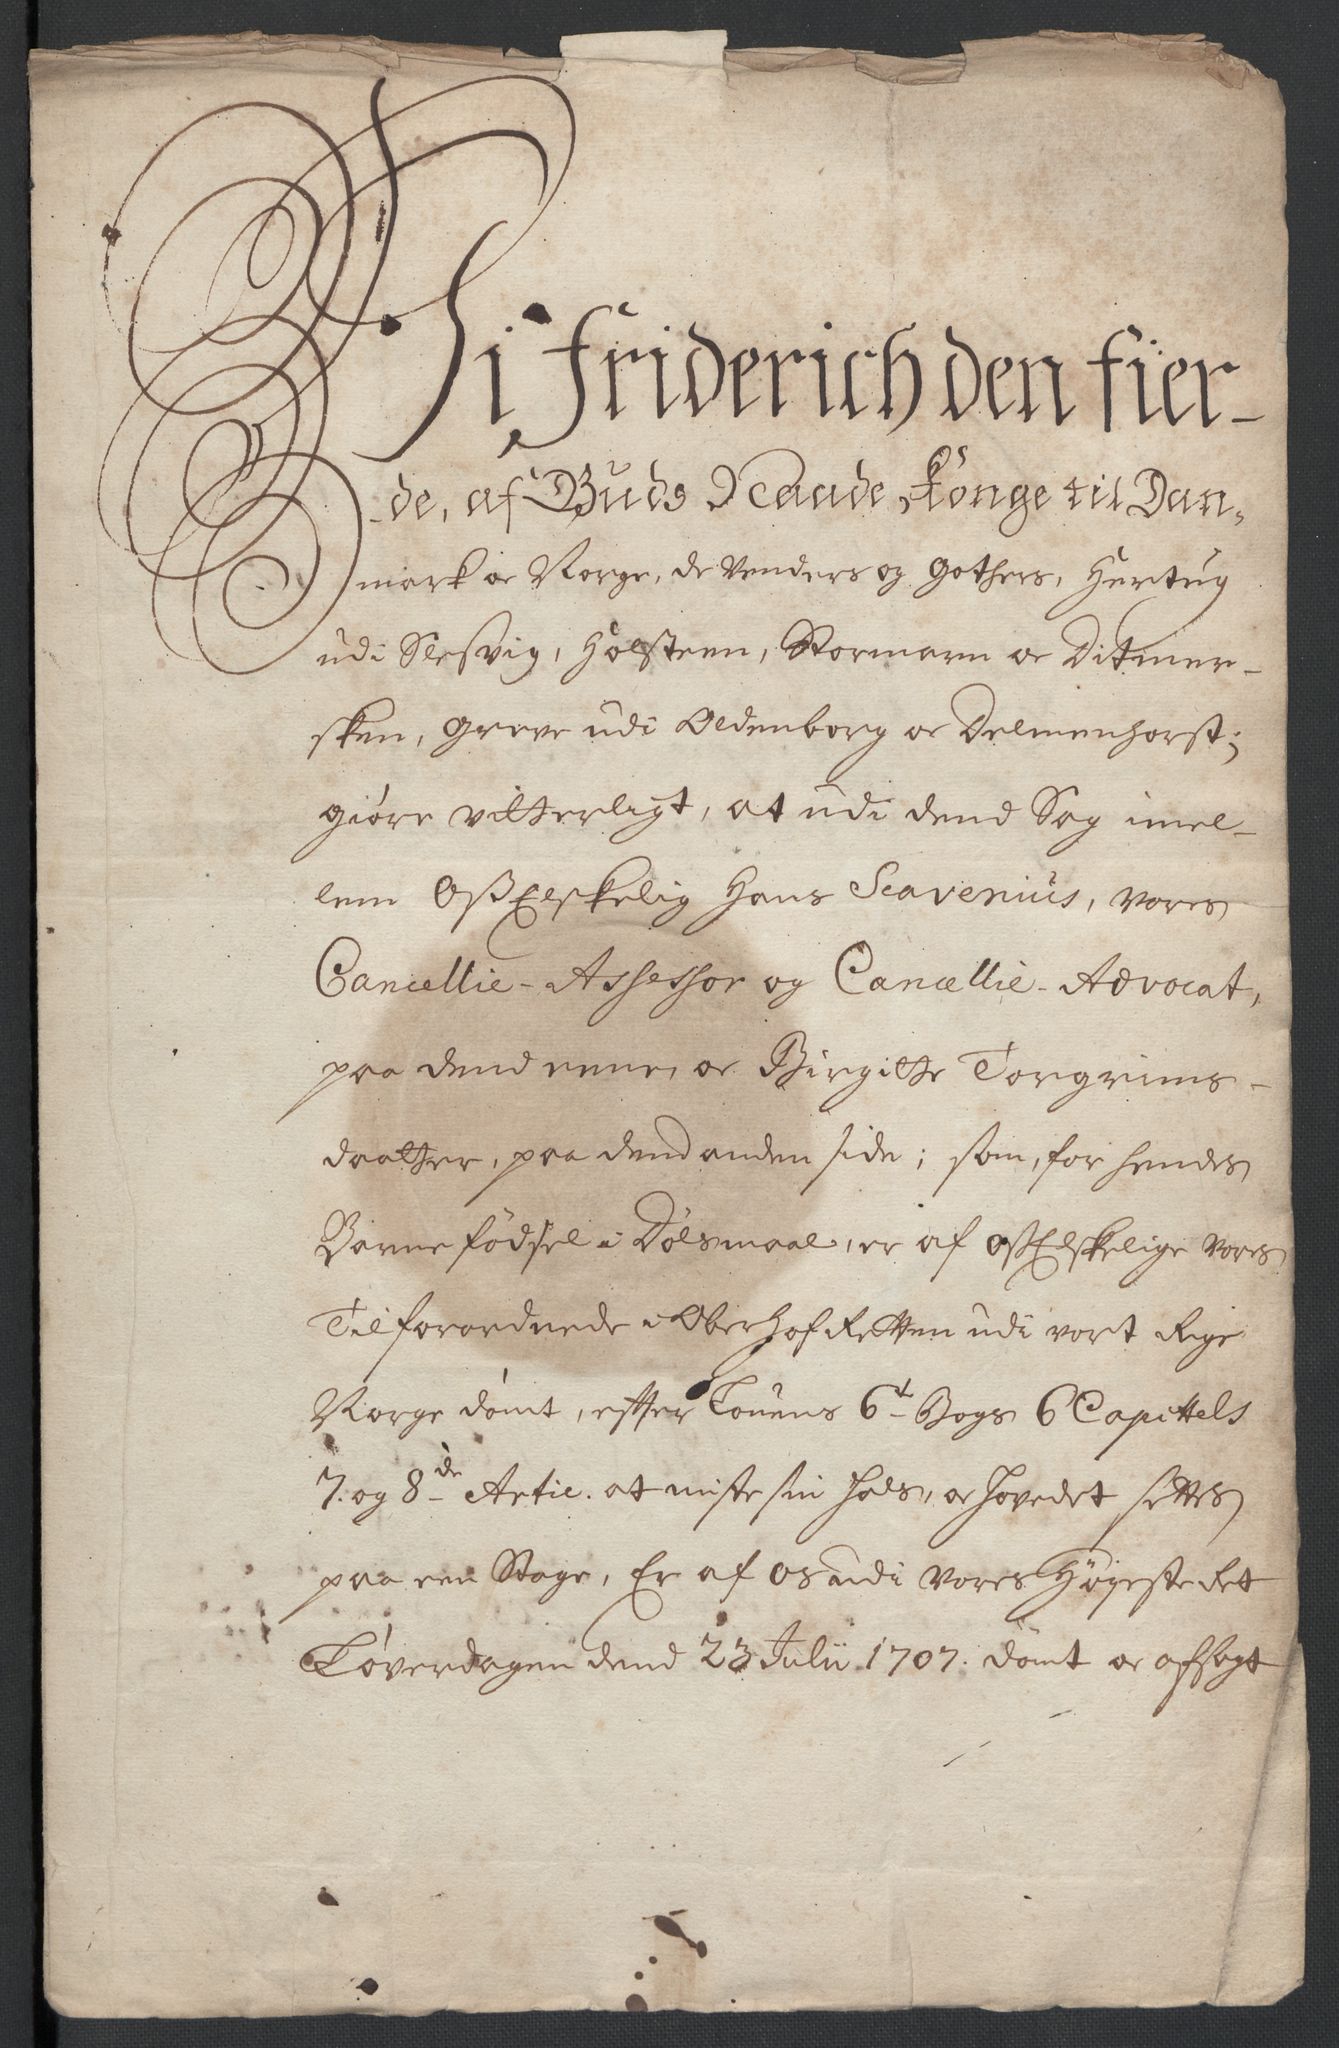 Vi Friderich den fier-
de, af Guds Naade Konge til Dan-
mark oc Norge, de Venders og Gothers, Hertug
udi Slesvig, Holsteen, Stormarn oc Ditmer-
sken, Greve udi Oldenborg oc Delmenhorst;
giöre vitterligt, at udi dend Sag imel-
lem Oss Elskelig Hans Scavenius, vores
Cancellie-Assessor og Cancellie-Advocat,
paa dend eene, oc Birgitte Torgrims-
daatter, paa dend anden side; som, for hendes
Barne födsel i Dölsmaal, er af oss Elskelige vores
Tilforordnede i OberhofRetten udi vort Rige
Norge dömt, efter Lovens 6t Bogs 6 Capittels
7. og 8de Artic. at miste sin Hals, oc hovedet settes
paa een Stage, Er af os udi vores Høyeste Ret
Løverdagen dend 23 Julii 1707. dömt oc afsagt